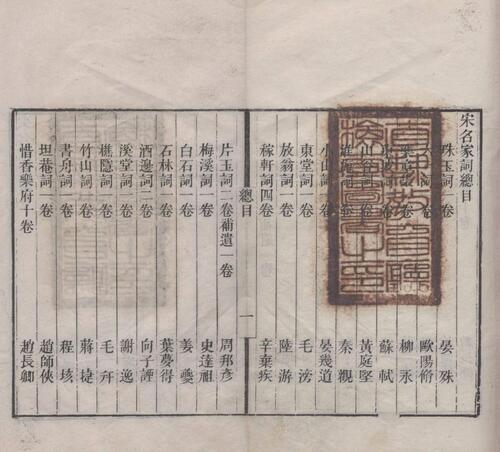 宋名家詞總目
珠玉詞一卷 晏殊
六一詞一卷 歐陽脩
樂章集一卷 柳永
東坡詞一卷 蘇軾
山谷詞一卷 黃庭堅
淮海詞一卷 秦觀
小山詞一卷 晏幾道
東堂詞一卷 毛滂
放翁詞一卷 陸游
稼軒詞四卷 辛棄疾
總目 一
片玉詞二卷補遺一卷 周邦彥
梅溪詞一卷 史達祖
白石詞一卷 姜夔
石林詞一卷 葉夢得
酒邊詞一卷 向子諲
溪堂詞一卷 謝逸
樵隱詞一卷 毛幵
竹山詞一卷 蔣捷
書舟詞一卷 程垓
坦菴詞一卷 趙師俠
惜香樂府十卷 趙長卿